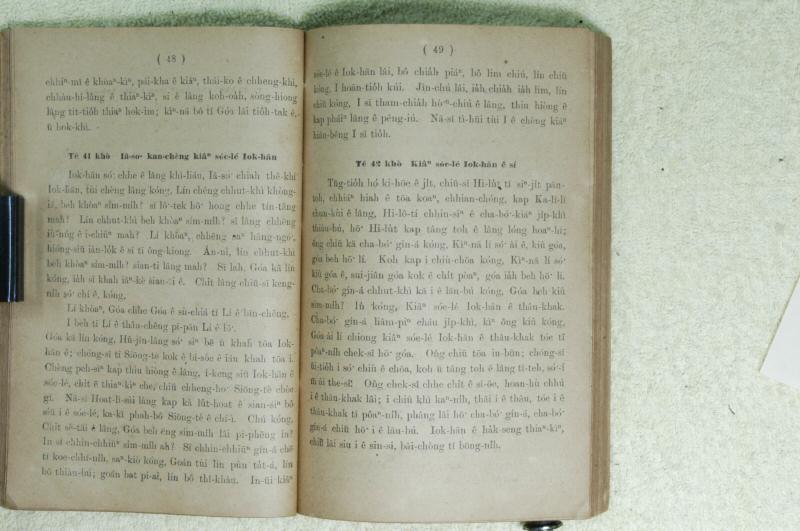 ( 48 )
chhiⁿ-mî ê khòaⁿ-kìⁿ, pái-kha ê kiâⁿ, thái-ko ê chheng-khì,
chhàu-hī-lâng ê thiaⁿ-kìⁿ, sí ê lâng koh-oa̍h, sòng-hiong
lâng tit-tio̍h thiaⁿ hok-im; kìⁿ-nā bô tī Góa lâi tio̍h-tak ê,
ū hok-khì.
Tē 41 khò Iâ-so͘ kan-chèng kiâⁿ sóe-lé Iok-hān
Iok-hān só͘ chhe ê lâng khì-liáu, Iâ-so͘ chiah thê-khí
Iok-hān, tùi chèng lâng kóng, Lín chêng chhut-khì khòng-
iá, beh khòaⁿ sím-mi̍h? sī lô͘-tek hō͘ hong chhe tín-tāng
mah? Lín chhut-khì beh khòaⁿ sím-mi̍h? sī lâng chhēng
iù-nńg ê i-chiûⁿ mah? Lí khòaⁿ, chhēng saⁿ hâng-ngó͘,
hióng-siū iàn-lo̍k ê sī tī ông-kiong. Án-ni, lín chhut-khì
beh khòaⁿ sím-mi̍h? sian-ti lâng mah? Sī lah, Góa kā lín
kóng, iā sī khah iâⁿ-kè sian-ti ê. Chit lâng chiū-sī keng-
ni̍h só͘ chí ê, kóng,
Lí khòaⁿ, Góa chhe Góa ê sù-chiá tī Lí ê bīn-chêng,
I beh tī Lí ê thâu-chêng pī-pān Lí ê lō͘.
Góa kā lín kóng, Hū-jîn-lâng só͘ siⁿ bē ū khah tōa Iok-
hān ê; chóng-sī tī Siōng-tè kok ê bī-sòe ê iáu khah tōa i.
Chèng peh-sìⁿ kap thiu hiòng ê lâng, í-keng siū Iok-hān ê
sóe-lé, chit ê thiaⁿ-kìⁿ che, chiū chheng-ho͘ Siōng-tè chòe
gī. Nā-sī Hoat-lī-sài lâng kap kà lu̍t-hoat ê sian-siⁿ bô
siū i ê sóe-lé, ka-kī phah-bô Siōng-tè ê chí-ì. Chú kóng,
Chit sè-tāi ê lâng, Góa beh ēng sím-mi̍h lâi pí-phēng in?
In sī chhin-chhiūⁿ sím-mi̍h ah? Sī chhin-chhiūⁿ gín-á chē
tī koe-chhī-ni̍h, saⁿ-kiò kóng, Goán tùi lín pûn ta̍t-á, lín
bô thiàu-bú; goán bat pi-ai, lín bô thî-khàu. In-ūi kiâⁿ
( 49 )
sóe-lé ê Iok-hān lâi, bô chia̍h piáⁿ, bô lim chiú, lín chiū
kóng, I hoān-tio̍h kúi. Jîn-chú lâi, ia̍h chia̍h ia̍h lim, lín
chiū kóng, I sī tham-chia̍h hò͘ⁿ-chiú ê lâng, thiu hiòng ê
kap pháiⁿ lâng ê pêng-iú. Nā-sī tì-hūi tùi I ê chèng kiáⁿ
hián-bêng I sī tio̍h.
Tē 42 khò Kiâⁿ sóe-lé Iok-hān ê sí
Tn̄g-tio̍h hó kî-hōe ê ji̍t, chiū-sī Hi-lu̍t tī siⁿ-ji̍t pān-
toh, chhiáⁿ hiah ê tōa koaⁿ, chhian-chóng, kap Ka-lī-lī
chun-kùi ê lâng, Hi-lô-tí chhin-siⁿ ê cha-bó͘-kiáⁿ ji̍p-khì
thiàu-bú, hō͘ Hi-lu̍t kap tâng toh ê lâng lóng hoaⁿ-hí;
ông chiū kā cha-bó͘ gín-á kóng, Kìⁿ-nā lí só͘ ài ê, kiû góa,
góa beh hō͘ lí. Koh kap i chiù-chōa kóng, Kìⁿ-nā lí só͘
kiû góa ê, sui-jiân góa kok ê chi̍t pòaⁿ, góa ia̍h beh hō͘ lí.
Cha-bó͘ gín-á chhut-khì kā i ê lāu-bú kóng, Góa beh kiû
sím-mi̍h? Ìn kóng, Kiâⁿ sóe-lé Iok-hān ê thâu-khak.
Cha-bó͘ gín-á liâm-piⁿ cháu ji̍p-khì, kìⁿ ông kiû kóng,
Góa ài lí chiong kiâⁿ sóe-lé Iok-hān ê thâu-khak tóe tī
pôaⁿ-ni̍h chek-sî hō͘ góa. Ông chiū tōa iu-būn; chóng-sī
ūi-tio̍h i só͘ chiù ê chōa, koh ū tâng toh ê lâng tī-teh, só͘-í
m̄ ài the-sî. Ông chek-sî chhe chi̍t ê sī-ōe, hoan-hù chhú
i ê thâu-khak lâi; i chiū khì kaⁿ-ni̍h, thâi i ê thâu, tóe i ê
thâu-khak tī pôaⁿ-ni̍h, phâng lâi hō͘ cha-bó͘ gín-á, cha-bó͘-
gín-á chiū hō͘ i ê lāu-bú. Iok-hān ê ha̍k-seng thiaⁿ-kìⁿ,
chiū lâi siu i ê sin-si, bâi-chòng tī bōng-ni̍h.